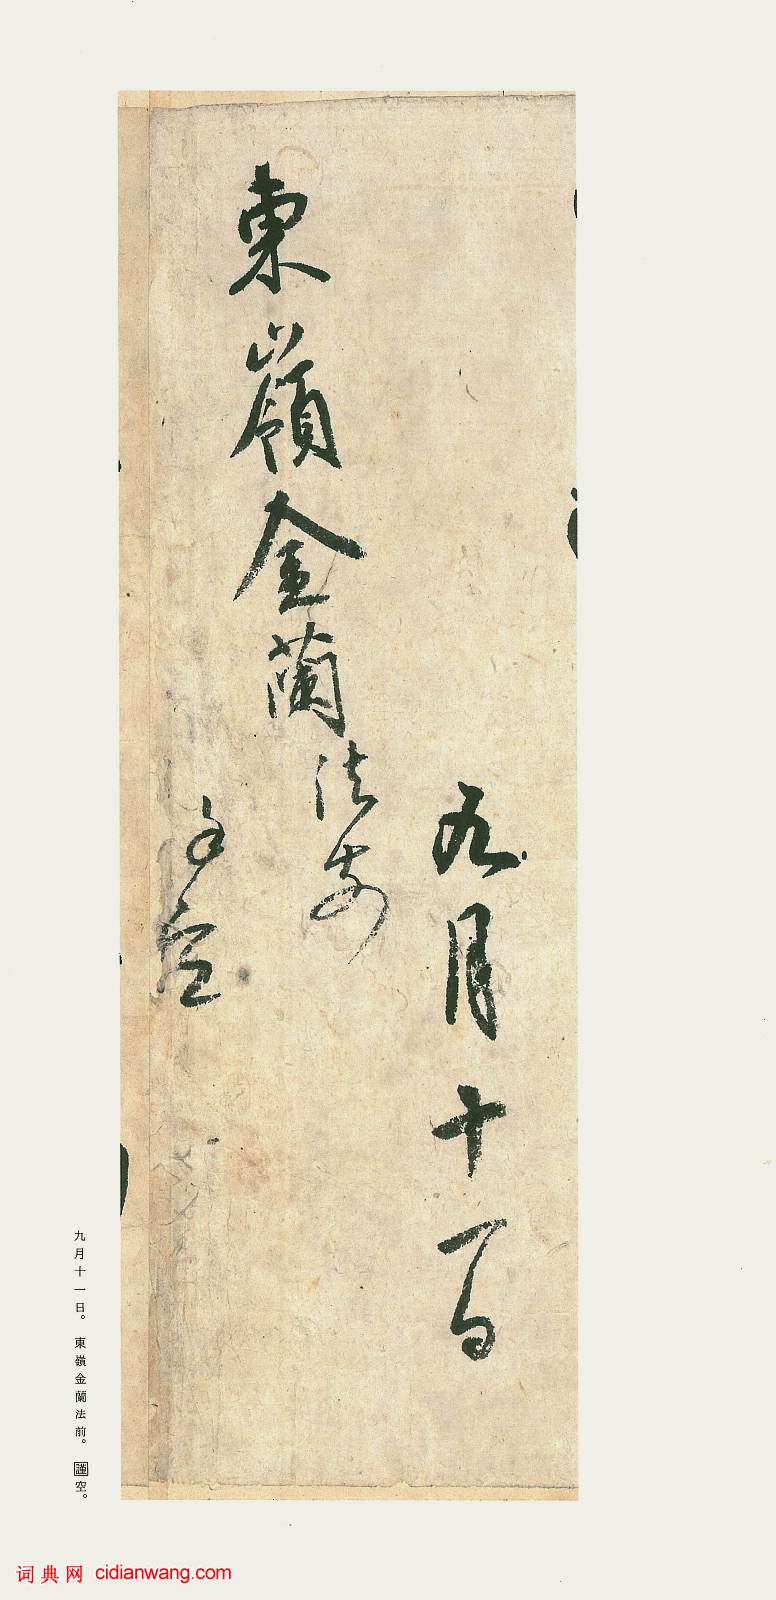 九月十一日
東嶺金蘭法前
九月十一日。東嶺金蘭法前。謹空。
词典网 cidianwang.com